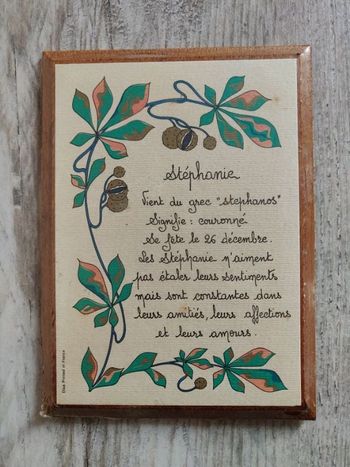 Stéphanie
Vient du grec "stephanos"
Signifie : couronné
Se fête le 26 décembre.
Les Stéphanie n'aiment
pas étaler leurs sentiments
mais sont constantes dans
leurs amitiés, leurs affections
et leurs amours.
Printed in France